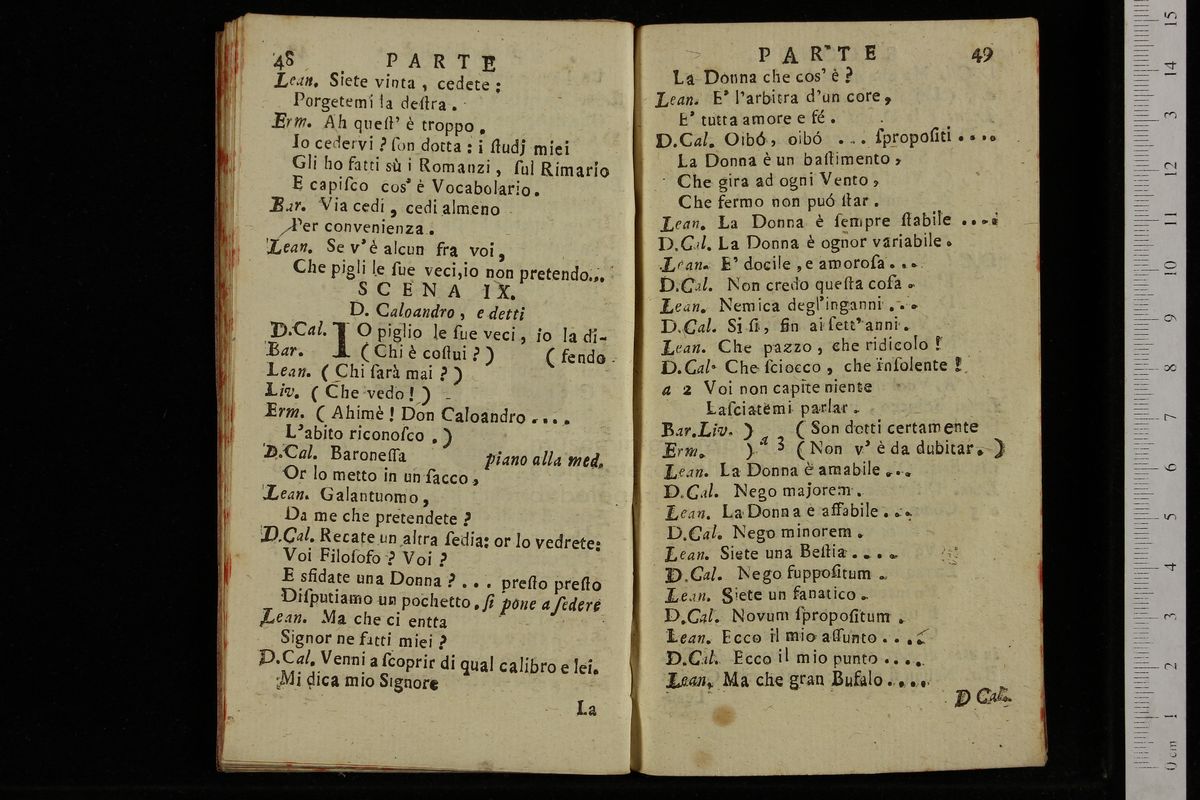 48 PARTE
Lean. Siete vinta, cedete;
Porgetemi la deſtra.
Erm. Ah queſt' è troppo.
Io cedervi? ſon dotta: i ſtudj miei
Gli ho fatti sù i Romanzi, ſul Rimario
E capiſco cos' è Vocabolario.
Bar. Via cedi, cedi almeno
Per convenienza.
Lean. Se v' è alcun fra voi,
Che pigli le ſue veci, io non pretendo...
SCENA IX.
D. Caloandro, e detti
D.Cal. IO piglio le ſue veci, io la di-
Bar. (Chi è coſtui?) (fendo
Lean. (Chi ſarà mai?)
Liv. (Che vedo!)
Erm. (Ahimè! Don Caloandro....
L'abito riconoſco.)
D.Cal. Baroneſſa piano alla med.
Or lo metto in un ſacco,
Lean. Galantuomo,
Da me che pretendete?
D.Cal. Recate un altra ſedia: or lo vedrete:
Voi Filoſofo? Voi?
E sfidate una Donna?... preſto preſto
Diſputiamo un pochetto. ſi pone a ſedere
Lean. Ma che ci entta
Signor ne fatti miei?
D.Cal. Venni a ſcoprir di qual calibro e lei.
Mi dica mio Signore
La
PARTE 49
La Donna che cos' è?
Lean. E' l'arbitra d'un core,
E' tutta amore e fé.
D.Cal. Oibó, oibó ... ſpropoſiti....
La Donna è un baſtimento,
Che gira ad ogni Vento,
Che fermo non puó ſtar.
Lean. La Donna è ſempre ſtabile....
D.Cal. La Donna è ognor variabile.
Lean. E' docile, e amoroſa...
D.Cal. Non credo queſta coſa.
Lean. Nemica degl'inganni...
D.Cal. Si ſi, fin ai ſett' anni.
Lean. Che pazzo, che ridicolo!
D.Cal. Che ſciocco, che inſolente!
a 2 Voi non capite niente
Laſciatemi parlar.
Bar.Liv. ) a 3 (Son dotti certamente
Erm. ) (Non v' è da dubitar.)
Lean. La Donna è amabile...
D.Cal. Nego majorem.
Lean. La Donna e affabile...
D.Cal. Nego minorem.
Lean. Siete una Beſtia....
D.Cal. Nego ſuppoſitum.
Lean. Siete un fanatico.
D.Cal. Novum ſpropoſitum.
Lean. Ecco il mio aſſunto....
D.Cal. Ecco il mio punto....
Lean. Ma che gran Bufalo....
D Cal.
15
14
3
12
11
10
9
8
7
6
5
4
3
2
1
0 cm